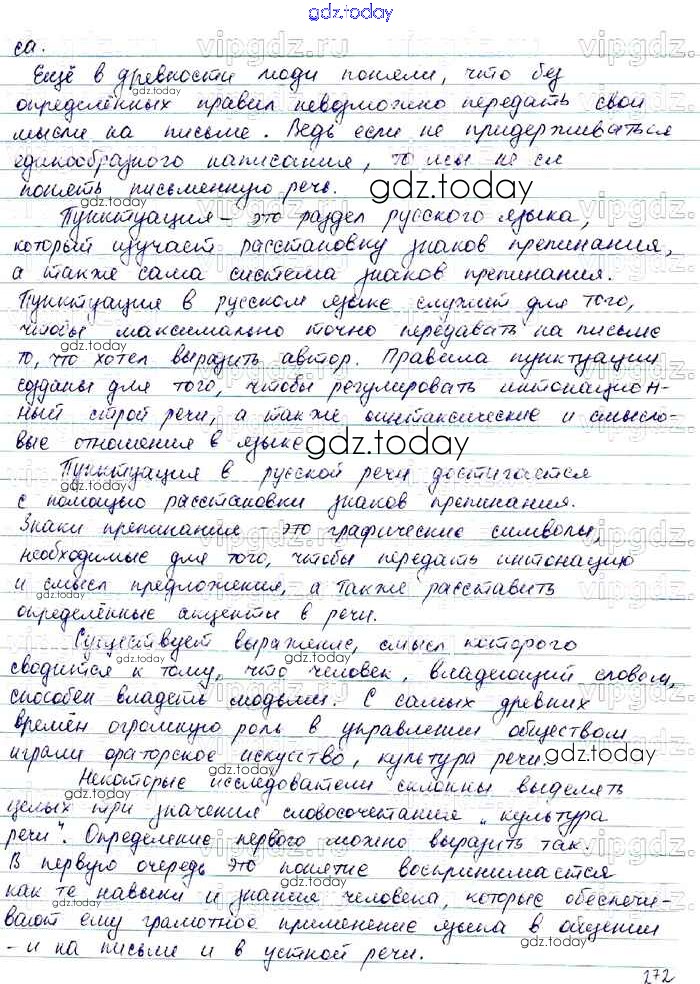 gdz.today
са.
Ещё в древности люди поняли, что без
определённых правил невозможно передать свои
мысли на письме. Ведь если не придерживаться
единообразного написания, то мы не см
понять письменную речь.
Пунктуация – это раздел русского языка,
который изучает расстановку знаков препинания,
а также сама система знаков препинания.
Пунктуация в русском языке служит для того,
чтобы максимально точно передавать на письме
то, что хотел выразить автор. Правила пунктуации
созданы для того, чтобы регулировать интонацион-
ный строй речи, а также синтаксические и смысло-
вые отношения в языке
Пунктуация в русской речи достигается
с помощью расстановки знаков препинания.
Знаки препинания – это графические символы,
необходимые для того, чтобы передать интонацию
и смысл предложения, а также расставить
определённые акценты в речи.
Существует выражение, смысл которого
сводится к тому, что человек, владеющий словом,
способен владеть людьми. С самых древних
времён огромную роль в управлении обществом
играли ораторское искусство, культура речи.
Некоторые исследователи склонны выделять
целых три значения словосочетания „культура
речи". Определение первого можно выразить так.
В первую очередь это понятие воспринимается
как те навыки и знания человека, которые обеспечи-
вают ему грамотное применение языка в общении
- и на письме и в устной речи.
272